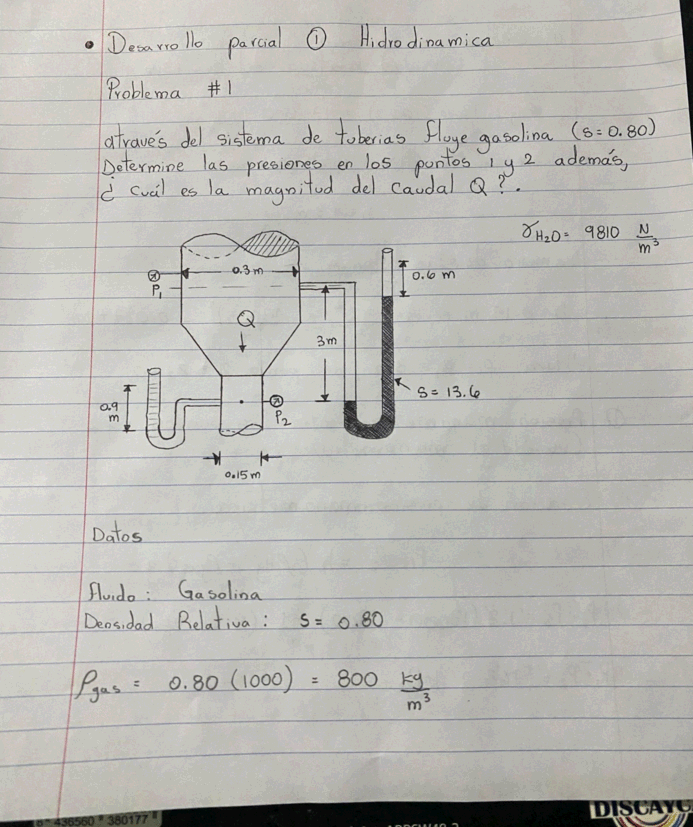 • Desarrollo parcial ① Hidrodinamica
Problema #1
através del sistema de tuberias fluye gasolina (s=0.80)
Determine las presiones en los puntos 1 y 2 además,
¿ cuál es la magnitud del caudal Q?.
γH2O= 9810 N/m³
0.3m
0.6 m
P1
Q
3m
S= 13.6
0.9 m
P2
0.15m
Datos
fluido: Gasolina
Densidad Relativa: S= 0.80
ρgas = 0.80 (1000) = 800 kg/m³
DISCAYC
436560 * 380177